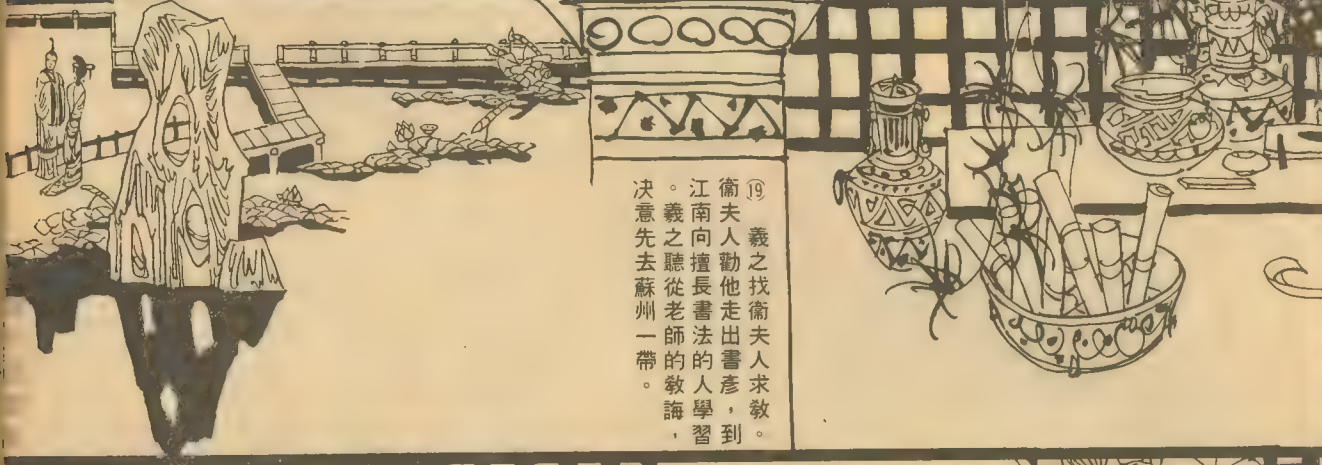 ⑲　羲之找衞夫人求教。
衞夫人勸他走出書彥，到
江南向擅長書法的人學習
。羲之聽從老師的教誨，
决意先去蘇州一帶。